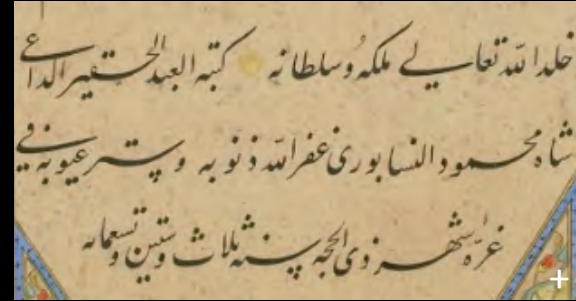 خلد الله تعالی ملکه وسلطانه كتبه العبد الحقیر الداعی
شاه محمود النیسابوری غفر الله ذنوبه وستر عیوبه فی
غرّه شهر ذی الحجه سنه ثلاث وستین وتسعمائه